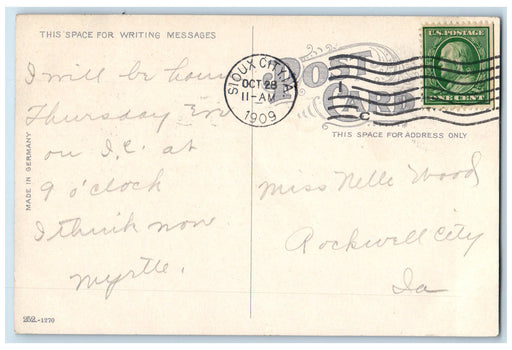 THIS SPACE FOR WRITING MESSAGES
I will be home
Thursday
on I.C. at
9 o'clock
I think now
Myrtle.
MADE IN GERMANY
252.-1270
POST CARD
THIS SPACE FOR ADDRESS ONLY
SIOUX CITY, IA.
OCT 28
11-AM
1909
C
U.S. POSTAGE
ONE CENT
Miss Nelle Wood
Rockwell City
Ia